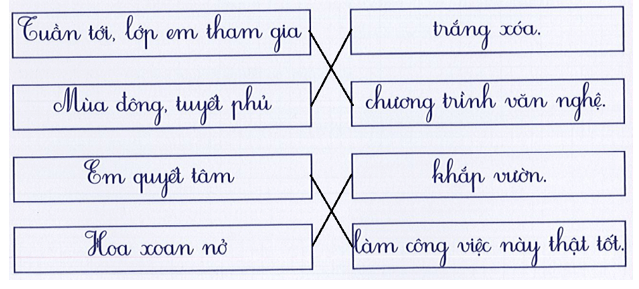 Tuần tới, lớp em tham gia
trắng xóa.
Mùa đông, tuyết phủ
chương trình văn nghệ.
Em quyết tâm
khắp vườn.
Hoa xoan nở
làm công việc này thật tốt.